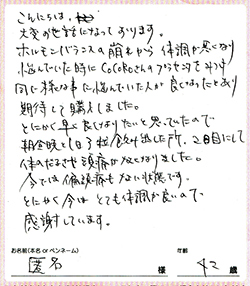 こんにちは。
大変お世話になっております。
ホルモンバランスの崩れから体調が悪くなり
悩んでいた時にCoCoRoさんのプラセンタをみつけ
同じ様な事に悩んでいた人が良くなったとあり
期待して購入しました。
とにかく早く良くなりたいと思っていたので
朝昼晩と1日3粒飲み出した所、2日目にして
体のだるさや頭痛がなくなりました。
今では偏頭痛もない状態です。
とにかく今はとても体調が良いので
感謝しています。
お名前(本名 or ペンネーム) 年齢
匿名 様 42 歳